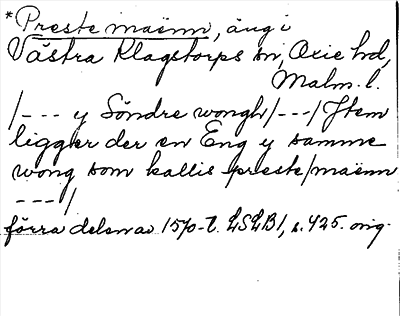 * Preste maënn, äng i
Västra Klagstorps sn, Oxie hd,
Malm. l.
/--- y Söndre wongh/---/ Jtem
liggher der en Eng y samme
wong som kallis preste/maënn
---/
förra delen av 1570-t. LSLB1, s. 425. orig.